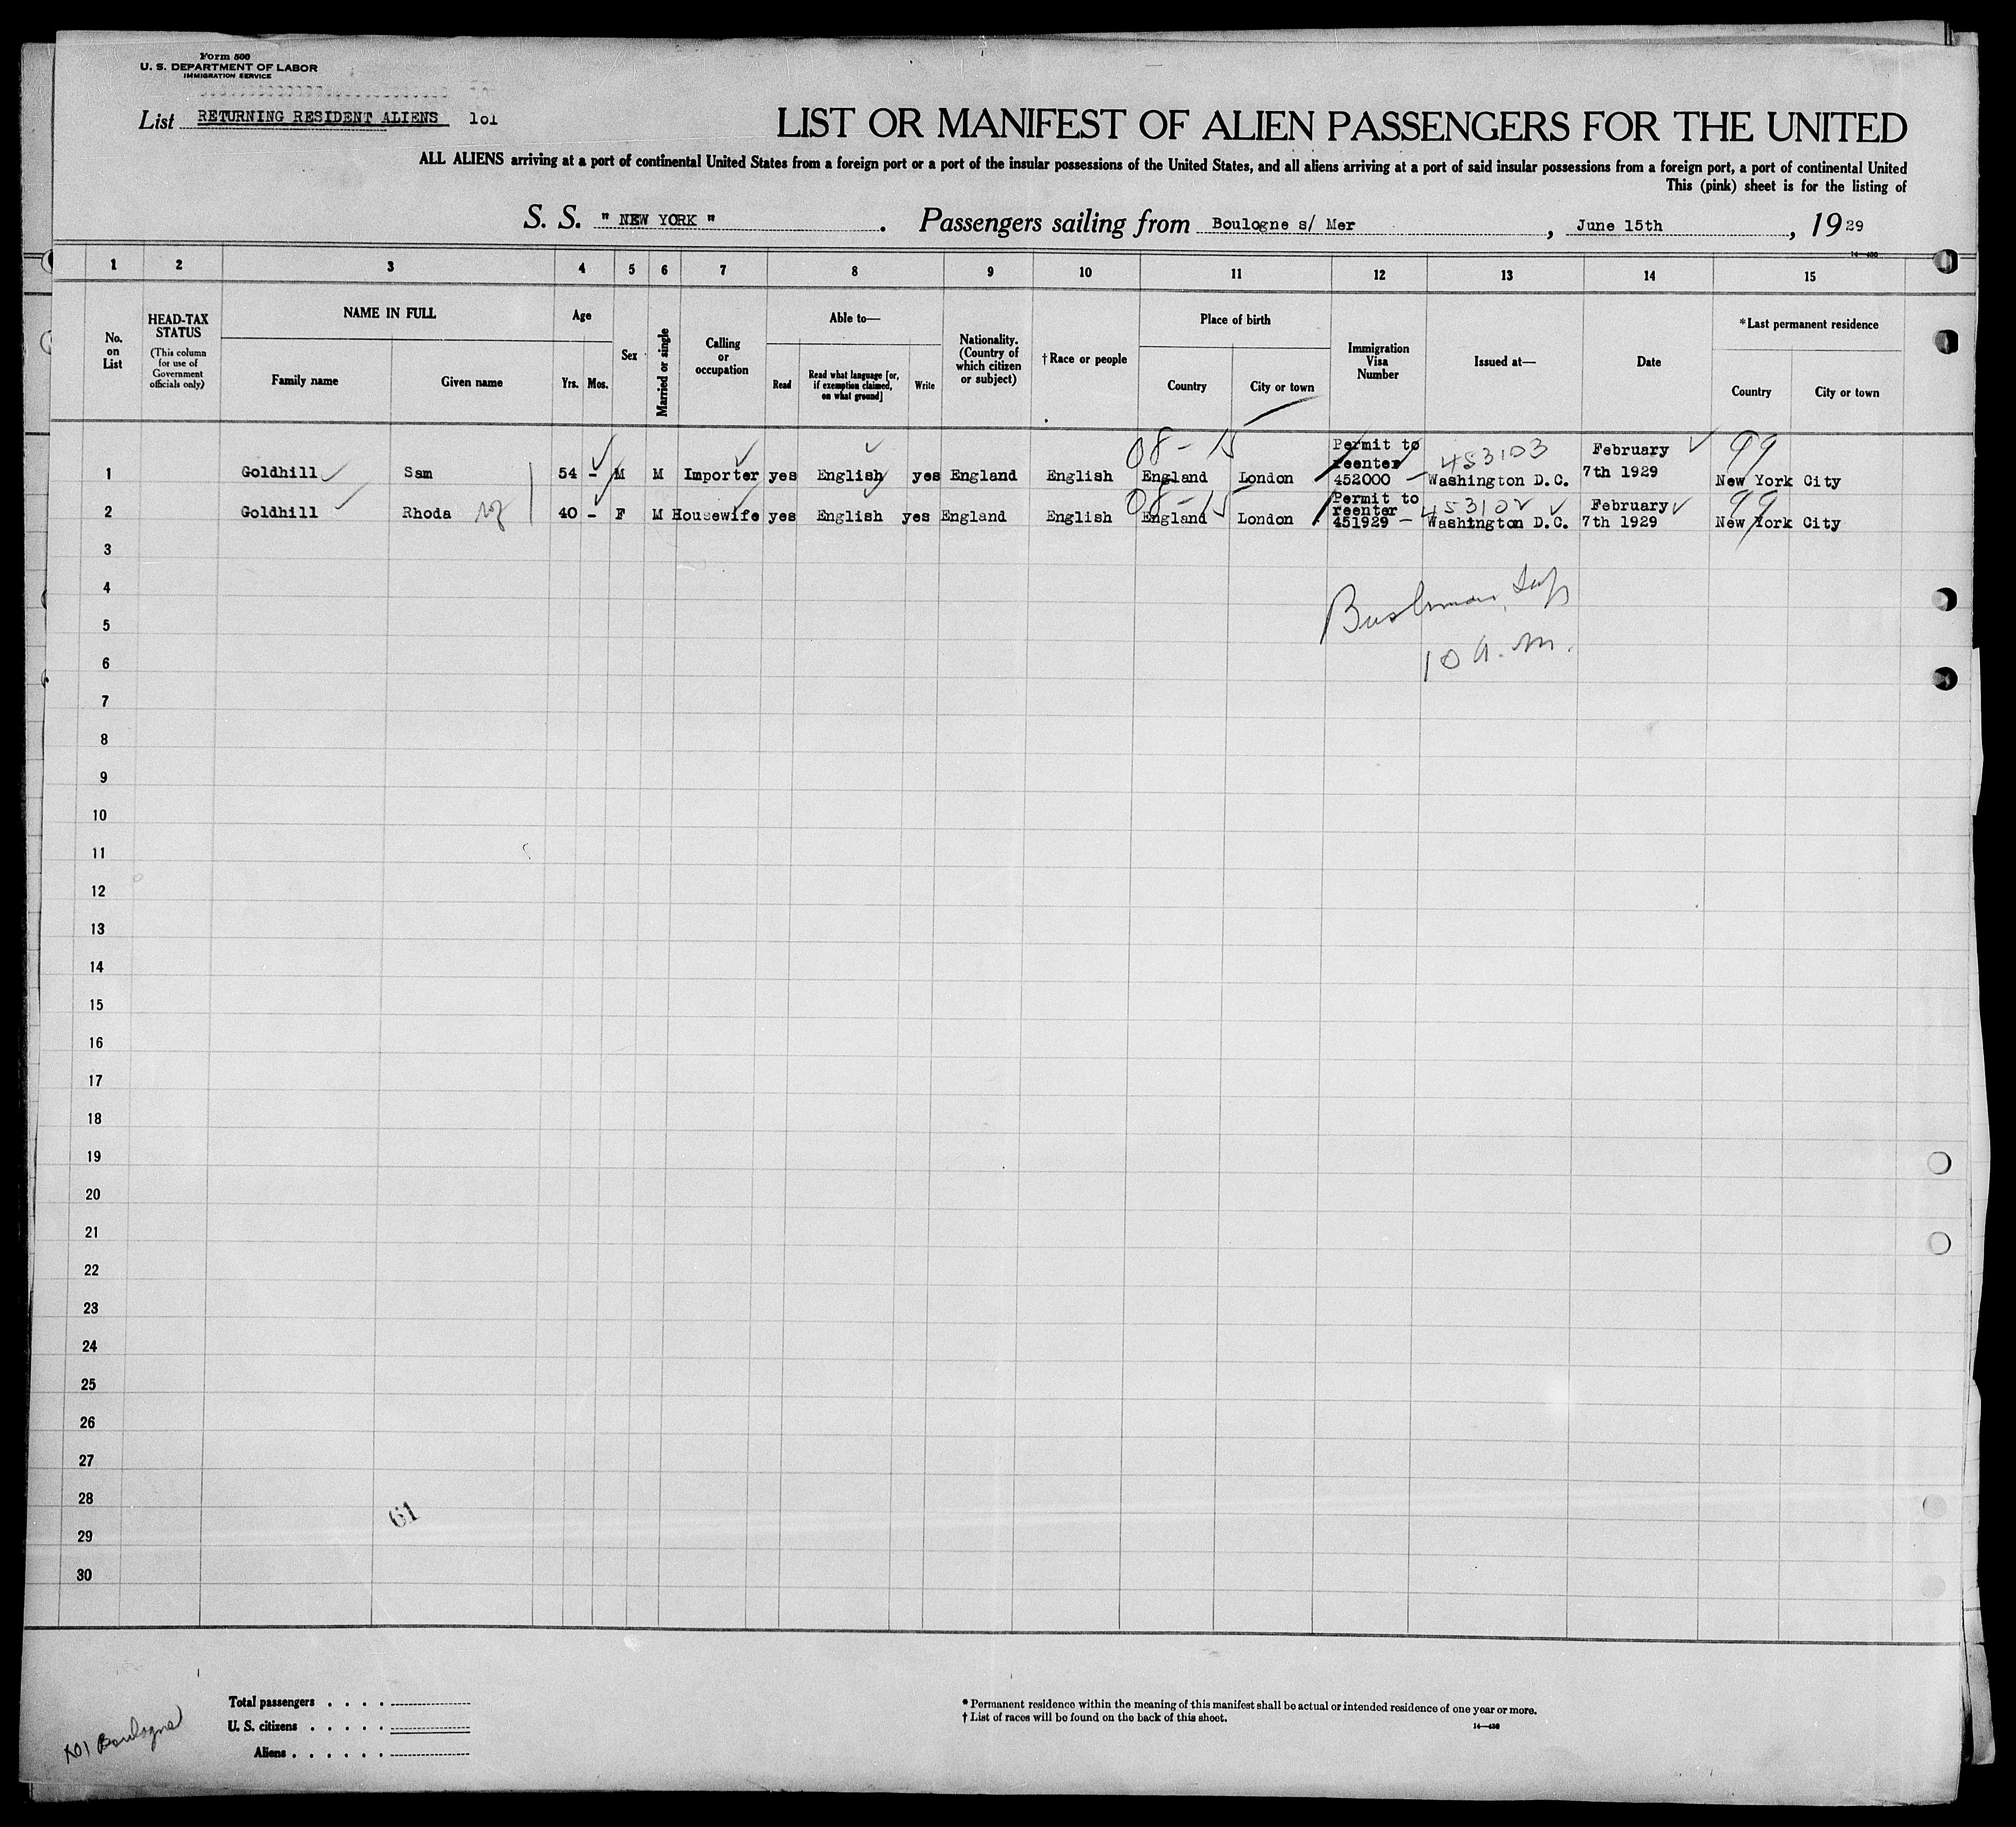 Form 500
U. S. DEPARTMENT OF LABOR
IMMIGRATION SERVICE
List RETURNING RESIDENT ALIENS 101
LIST OR MANIFEST OF ALIEN PASSENGERS FOR THE UNITED
ALL ALIENS arriving at a port of continental United States from a foreign port or a port of the insular possessions of the United States, and all aliens arriving at a port of said insular possessions from a foreign port, a port of continental United
This (pink) sheet is for the listing of
S. S. " NEW YORK " . Passengers sailing from Boulogne s/ Mer , June 15th , 1929
14—430
1 2 3 4 5 6 7 8 9 10 11 12 13 14 15
No. on List
HEAD-TAX STATUS
(This column for use of Government officials only)
NAME IN FULL
Family name Given name
Age
Yrs. Mos.
Sex
Married or single
Calling or occupation
Able to—
Read
Read what language [or, if exemption claimed, on what ground]
Write
Nationality. (Country of which citizen or subject)
† Race or people
Place of birth
Country City or town
Immigration Visa Number
Issued at—
Date
*Last permanent residence
Country City or town
08-15 453103 99
1 Goldhill Sam 54 - M M Importer yes English yes England English England London Permit to reenter 452000 - Washington D.C. February 7th 1929 New York City
08-15 453102 99
2 Goldhill Rhoda 40 - F M Housewife yes English yes England English England London Permit to reenter 451929 - Washington D.C. February 7th 1929 New York City
3
4
5
6
10 A.M.
7
8
9
10
11
12
13
14
15
16
17
18
19
20
21
22
23
24
25
26
27
28
61
29
30
Total passengers . . . .
U. S. citizens . . . . .
Aliens . . . . . .
* Permanent residence within the meaning of this manifest shall be actual or intended residence of one year or more.
† List of races will be found on the back of this sheet.
14—430
101 Boulogne